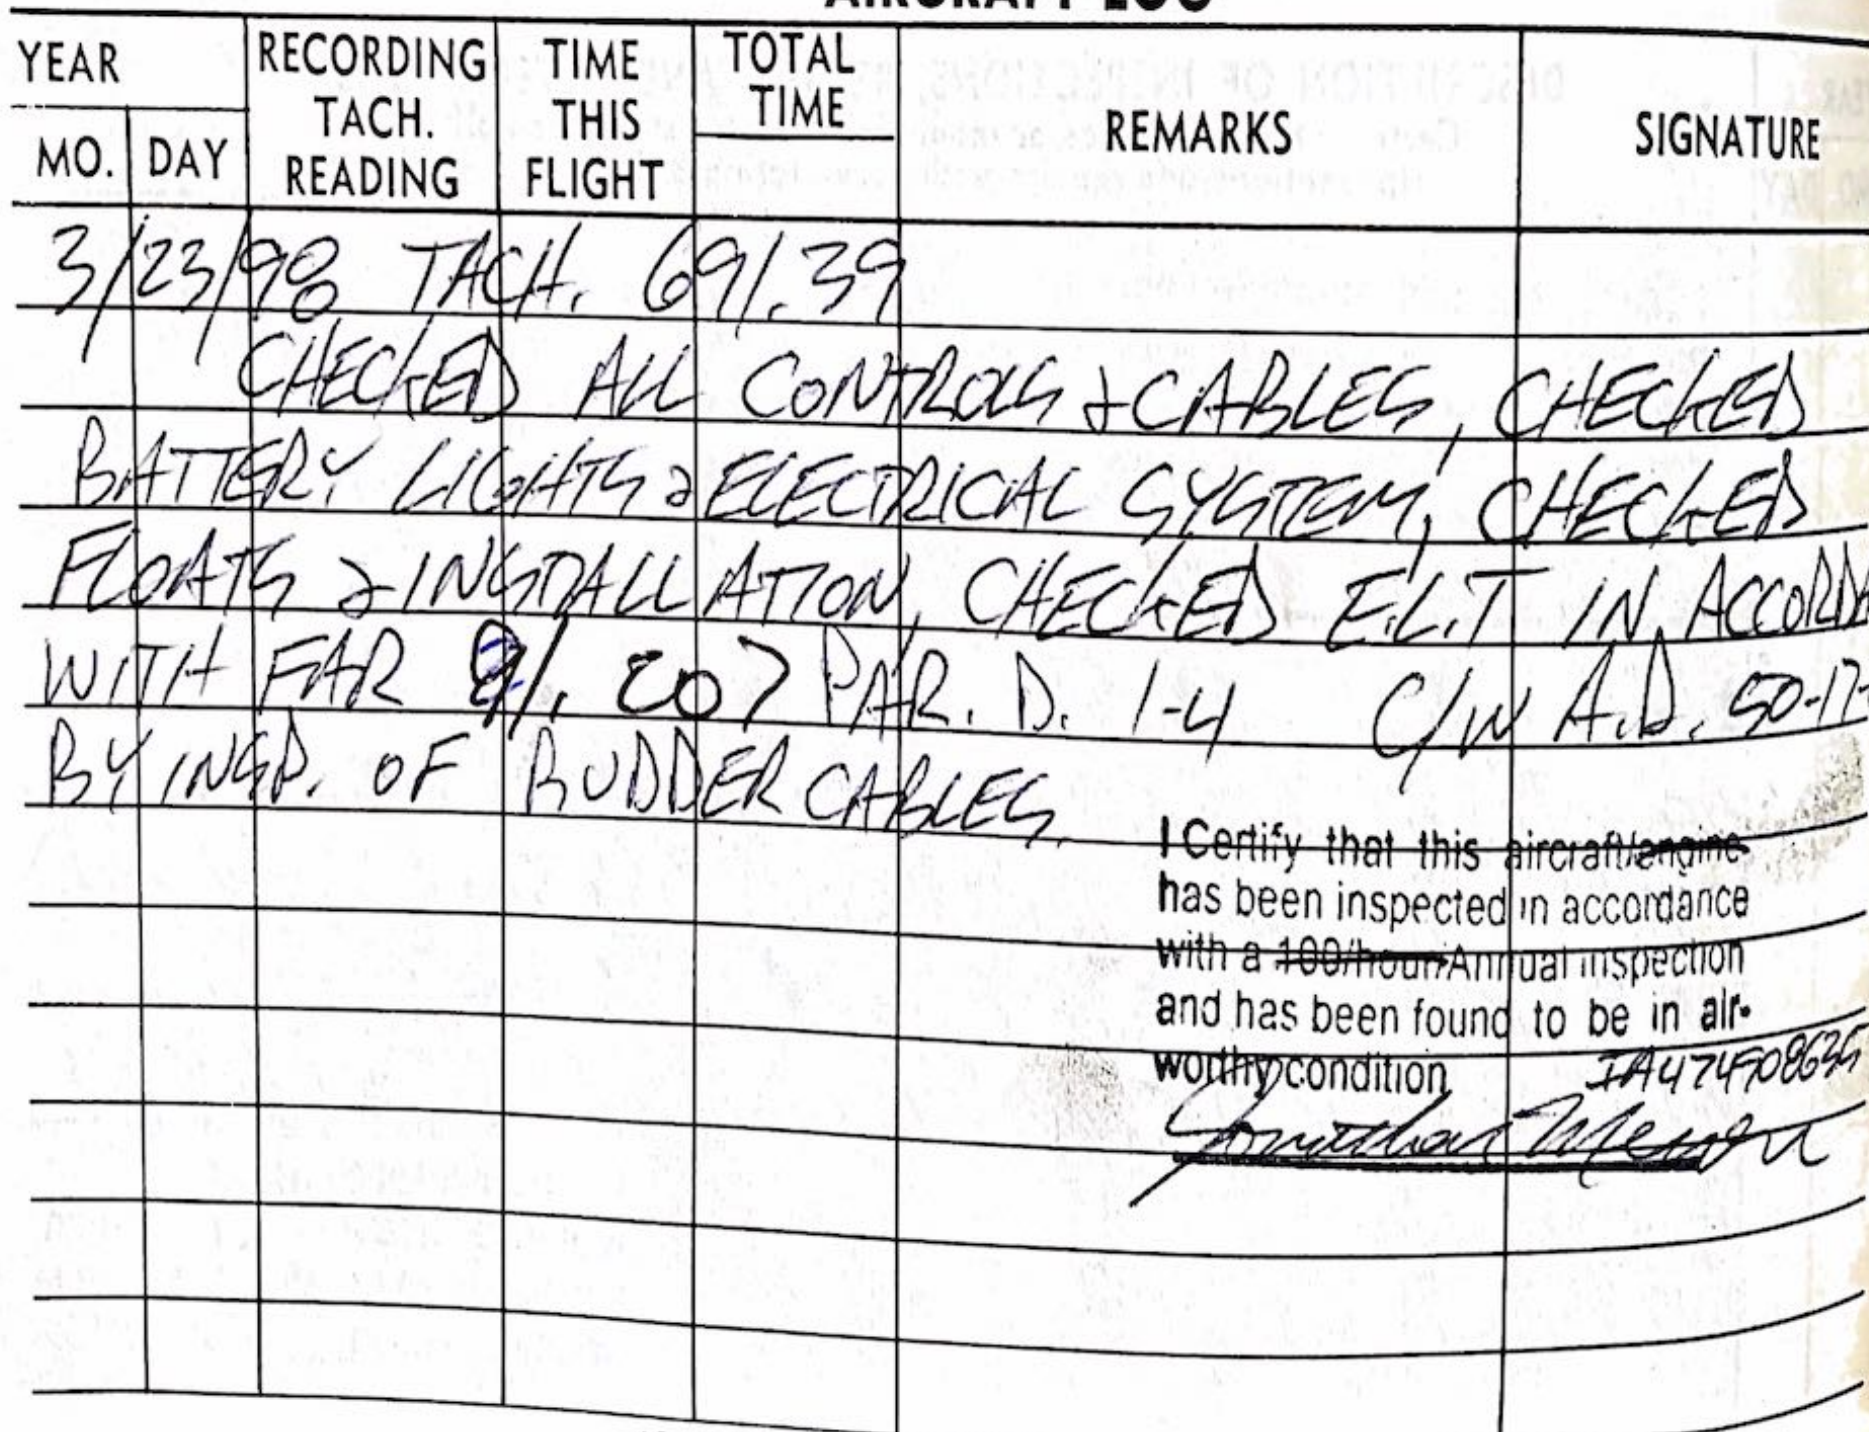 AIRCRAFT LOG
YEAR
MO. DAY
RECORDING TACH. READING
TIME THIS FLIGHT
TOTAL TIME
REMARKS
SIGNATURE
3/23/98 TACH. 691.39
CHECKED ALL CONTROLS & CABLES, CHECKED
BATTERY LIGHTS & ELECTRICAL SYSTEM, CHECKED
FLOATS & INSTALLATION, CHECKED E.L.T IN ACCORDA
WITH FAR 91.207 PAR. D. 1-4 C/W A.D. 50-17-
BY INSP. OF RUDDER CABLES.
I Certify that this aircraft/engine
has been inspected in accordance
with a 100/hour/Annual inspection
and has been found to be in air-
worthy condition
Jonathan